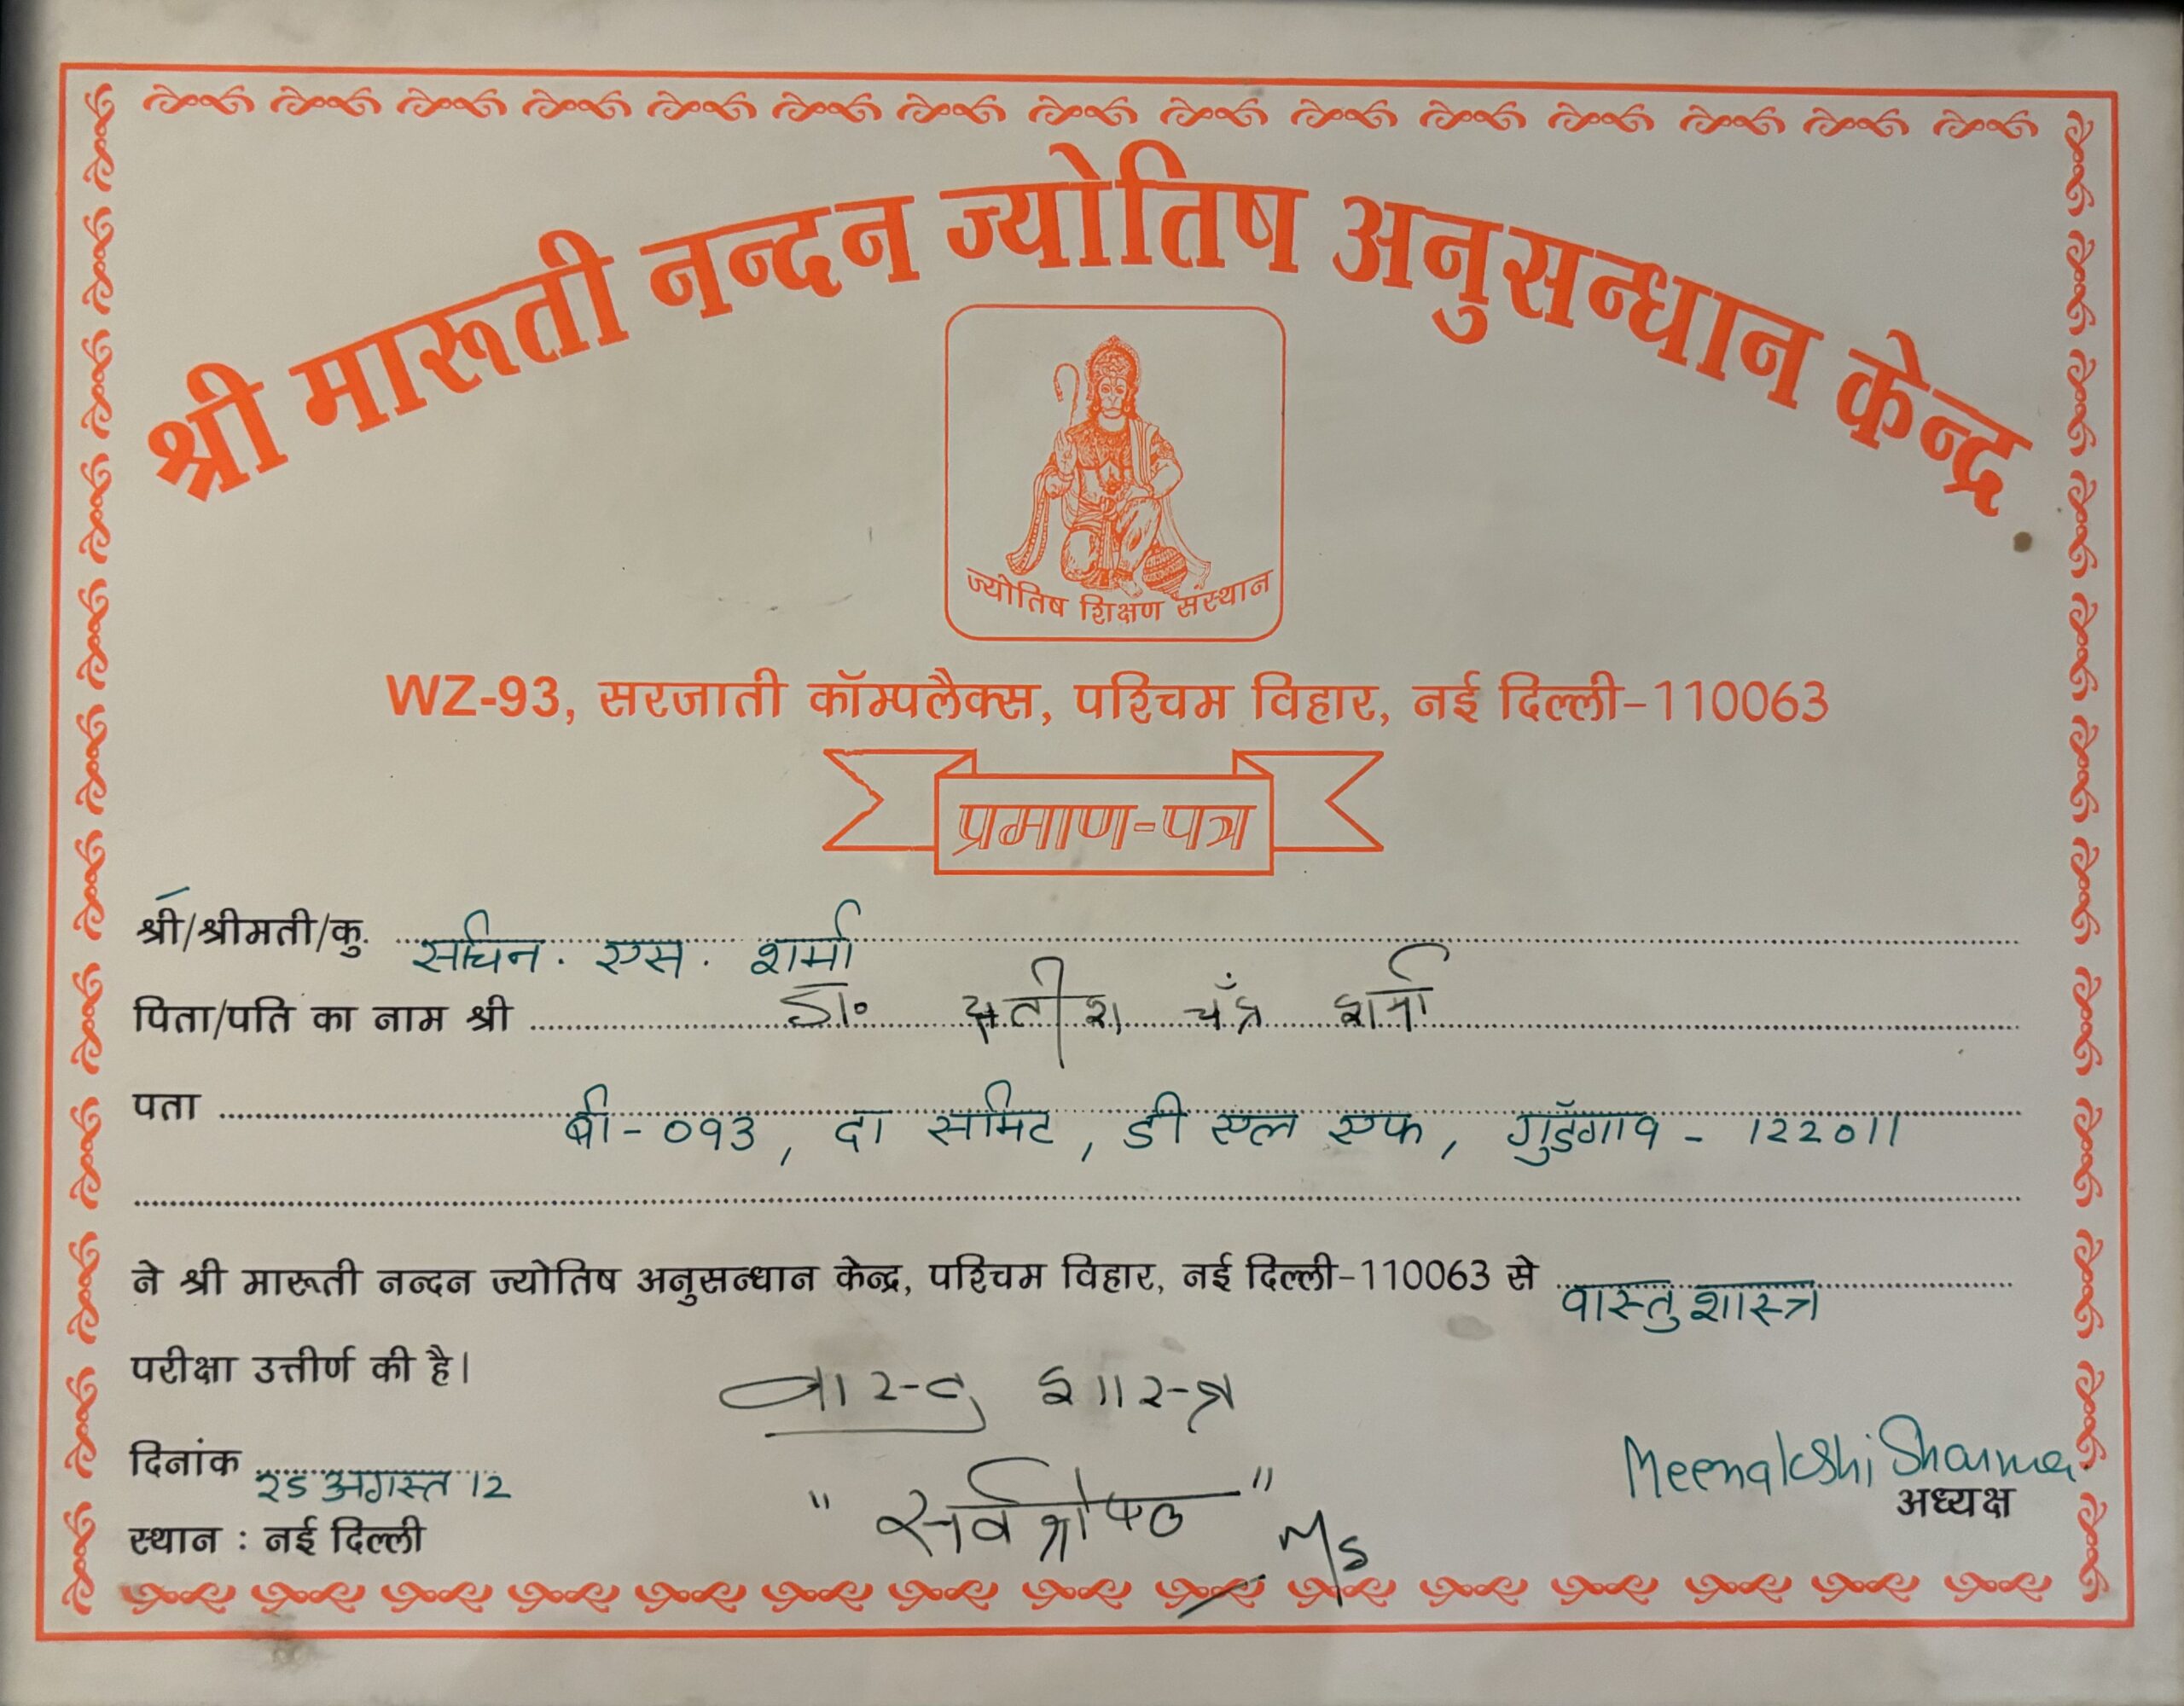 श्री मारूती नन्दन ज्योतिष अनुसन्धान केन्द्र
ज्योतिष शिक्षण संस्थान
WZ-93, सरजाती कॉम्पलैक्स, पश्चिम विहार, नई दिल्ली-110063
प्रमाण-पत्र
श्री/श्रीमती/कु. सचिन. एस. शर्मा
पिता/पति का नाम श्री डा॰ सतीश चँद्र शर्मा
पता बी-093, दा समिट, डी एल एफ, गुडॅगाव - 122011
ने श्री मारूती नन्दन ज्योतिष अनुसन्धान केन्द्र, पश्चिम विहार, नई दिल्ली-110063 से वास्तु शास्त्र
परीक्षा उत्तीर्ण की है।
वास्तु शास्त्र
दिनांक २५ अगस्त 12
Meenakshi Sharma
अध्यक्ष
" सर्वश्रेष्ठ "
M/S
स्थान : नई दिल्ली